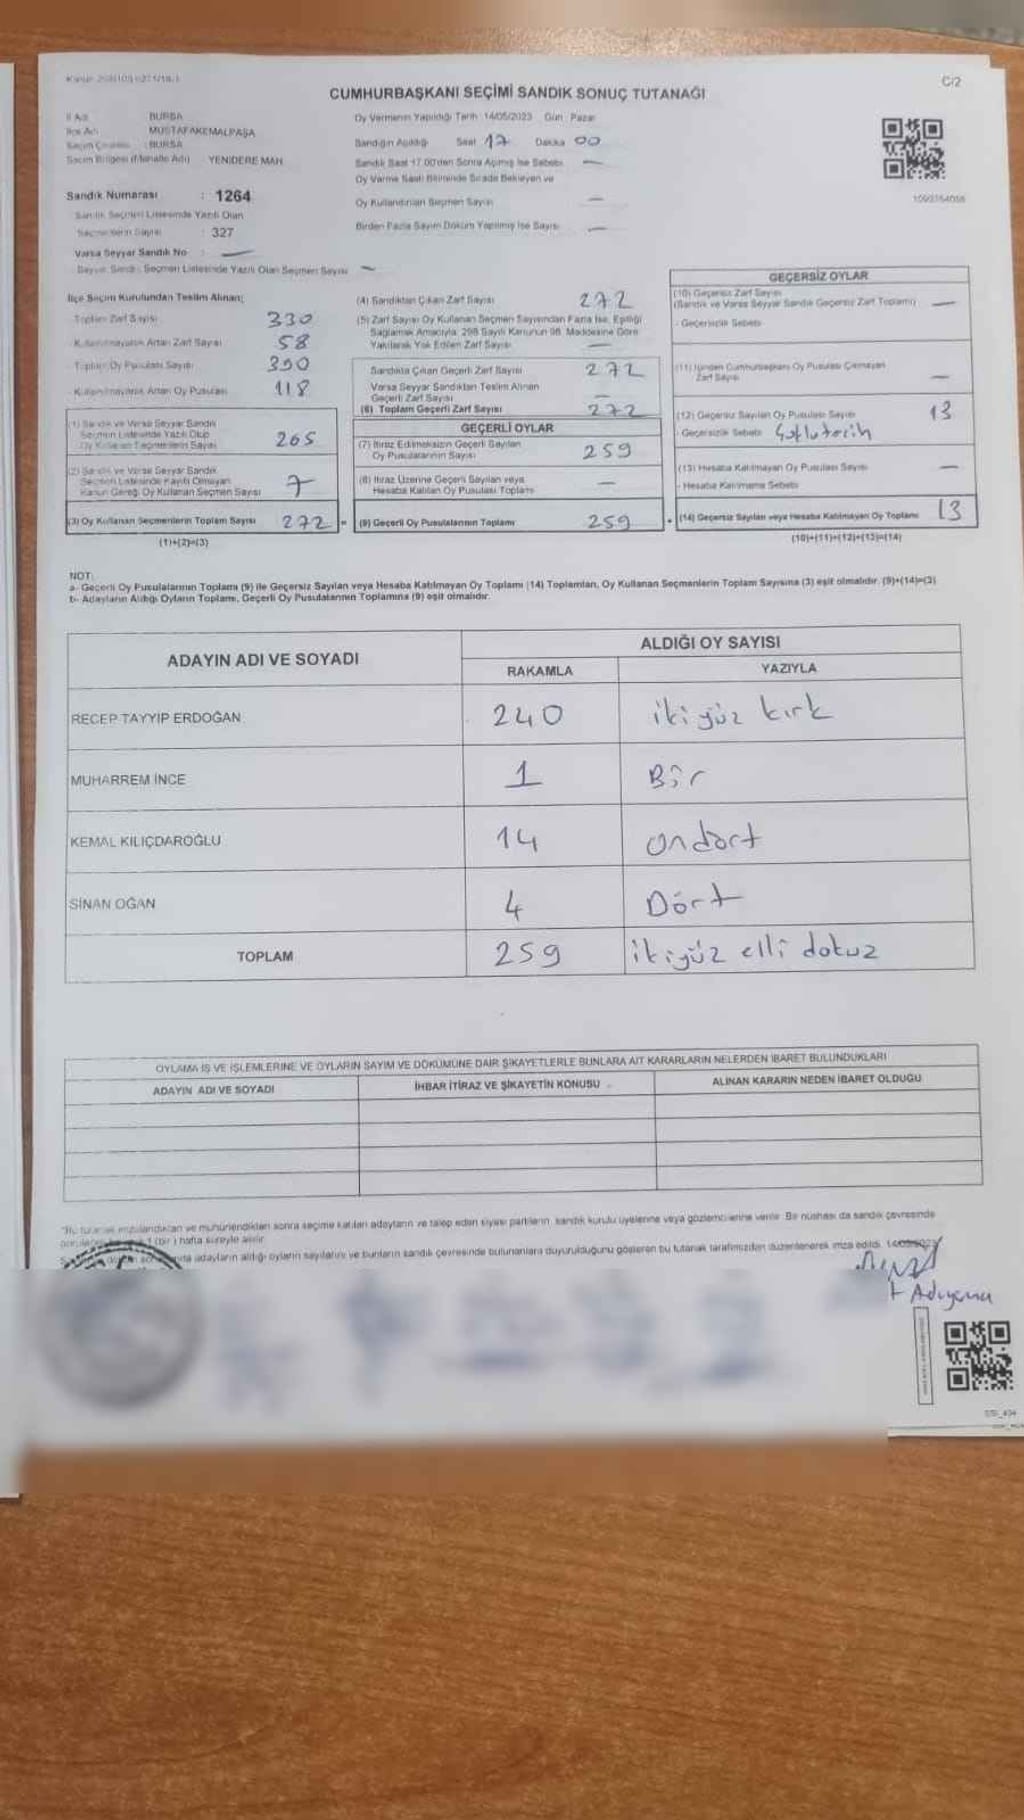 C/2
CUMHURBAŞKANI SEÇİMİ SANDIK SONUÇ TUTANAĞI
İl Adı BURSA
İlçe Adı MUSTAFAKEMALPAŞA
Seçim Çevresi : BURSA
Seçim Bölgesi (Mahalle Adı) YENİDERE MAH
Sandık Numarası : 1264
Sandık Seçmen Listesinde Yazılı Olan
Seçmenlerin Sayısı : 327
Varsa Seyyar Sandık No : —
Seyyar Sandık Seçmen Listesinde Yazılı Olan Seçmen Sayısı —
Oy Vermenin Yapıldığı Tarih 14/05/2023 Gün Pazar
Sandığın Açıldığı Saat 17 Dakika 00
Sandık Saat 17.00'den Sonra Açılmış İse Sebebi —
Oy Verme Saati Bitiminde Sırada Bekleyen ve
Oy Kullandırılan Seçmen Sayısı —
Birden Fazla Sayım Döküm Yapılmış İse Sayısı —
İlçe Seçim Kurulundan Teslim Alınan;
Toplam Zarf Sayısı 330
Kullanılmayarak Artan Zarf Sayısı 58
Toplam Oy Pusulası Sayısı 390
Kullanılmayarak Artan Oy Pusulası 118
(1) Sandık ve Varsa Seyyar Sandık
Seçmen Listesinde Yazılı Olup
Oy Kullanan Seçmenlerin Sayısı 265
(2) Sandık ve Varsa Seyyar Sandık
Seçmen Listesinde Kayıtlı Olmayan
Kanun Gereği Oy Kullanan Seçmen Sayısı 7
(3) Oy Kullanan Seçmenlerin Toplam Sayısı 272
(1)+(2)=(3)
(4) Sandıktan Çıkan Zarf Sayısı 272
(5) Zarf Sayısı Oy Kullanan Seçmen Sayısından Fazla İse, Eşitliği
Sağlamak Amacıyla 298 Sayılı Kanunun 98. Maddesine Göre
Yakılarak Yok Edilen Zarf Sayısı —
Sandıkta Çıkan Geçerli Zarf Sayısı 272
Varsa Seyyar Sandıktan Teslim Alınan
Geçerli Zarf Sayısı —
(6) Toplam Geçerli Zarf Sayısı 272
GEÇERLİ OYLAR
(7) İtiraz Edilmeksizin Geçerli Sayılan
Oy Pusulalarının Sayısı 259
(8) İtiraz Üzerine Geçerli Sayılan veya
Hesaba Katılan Oy Pusulası Toplamı —
(9) Geçerli Oy Pusulalarının Toplamı 259
GEÇERSİZ OYLAR
(10) Geçersiz Zarf Sayısı
(Sandık ve Varsa Seyyar Sandık Geçersiz Zarf Toplamı) —
- Geçersizlik Sebebi
(11) İçinden Cumhurbaşkanı Oy Pusulası Çıkmayan
Zarf Sayısı —
(12) Geçersiz Sayılan Oy Pusulası Sayısı 13
- Geçersizlik Sebebi
(13) Hesaba Katılmayan Oy Pusulası Sayısı —
- Hesaba Katılmama Sebebi
(14) Geçersiz Sayılan veya Hesaba Katılmayan Oy Toplamı 13
(10)+(11)+(12)+(13)=(14)
NOT:
a- Geçerli Oy Pusulalarının Toplamı (9) ile Geçersiz Sayılan veya Hesaba Katılmayan Oy Toplamı (14) Toplamları, Oy Kullanan Seçmenlerin Toplam Sayısına (3) eşit olmalıdır. (9)+(14)=(3)
b- Adayların Aldığı Oyların Toplamı, Geçerli Oy Pusulalarının Toplamına (9) eşit olmalıdır.
ADAYIN ADI VE SOYADI
ALDIĞI OY SAYISI
RAKAMLA YAZIYLA
RECEP TAYYIP ERDOĞAN 240 iki yüz kırk
MUHARREM İNCE 1 Bir
KEMAL KILIÇDAROĞLU 14 ondört
SİNAN OĞAN 4 Dört
TOPLAM 259 ikiyüz elli dokuz
OYLAMA İŞ VE İŞLEMLERİNE VE OYLARIN SAYIM VE DÖKÜMÜNE DAİR ŞİKAYETLERLE BUNLARA AİT KARARLARIN NELERDEN İBARET BULUNDUKLARI
ADAYIN ADI VE SOYADI İHBAR İTİRAZ VE ŞİKAYETİN KONUSU ALINAN KARARIN NEDEN İBARET OLDUĞU
imzalandıktan ve mühürlendikten sonra seçime katılan adayların ve talep eden siyasi partilerin sandık kurulu üyelerine veya gözlemcilerine verilir. Bir nüshası da sandık çevresinde
1 (bir) hafta süreyle asılır.
adayların aldığı oyların sayılarını ve bunların sandık çevresinde bulunanlara duyurulduğunu gösteren bu tutanak tarafımızdan düzenlenerek imza edildi. 14/05/2023